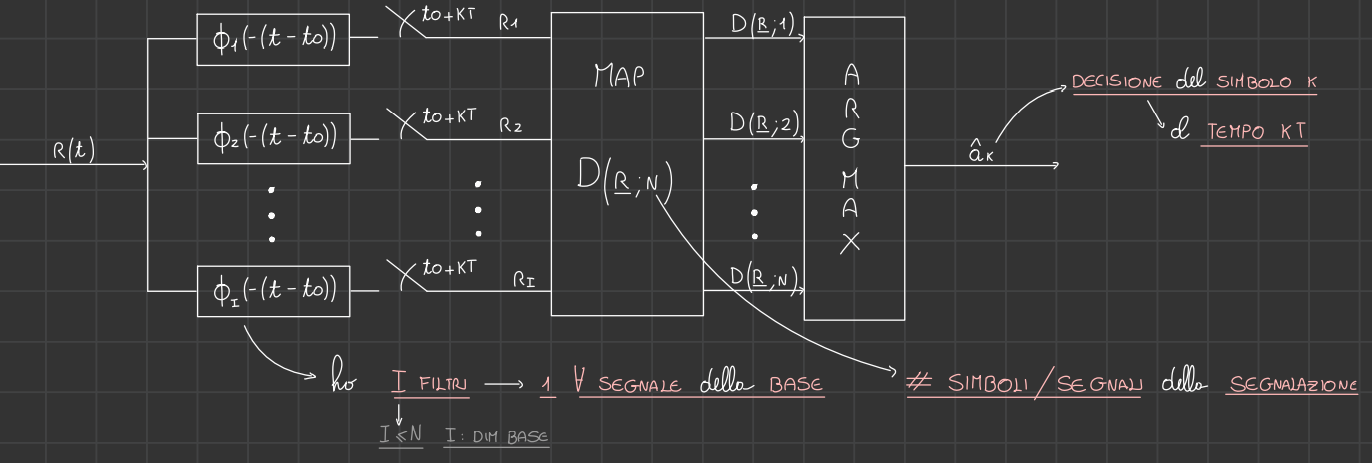 R(t)
ϕ₁(-(t-to))
to+KT
R1
ϕ₂(-(t-to))
to+KT
R2
ϕ_I(-(t-to))
to+KT
R_I
MAP
D(R;N)
D(R;1)
D(R;2)
D(R;N)
ARGMAX
âₖ
DECISIONE del SIMBOLO K
d TEMPO KT
ho I FILTRI → 1 ∀ SEGNALE della BASE
I≤N I: DIM BASE
# SIMBOLI/SEGNALI della SEGNALAZIONE